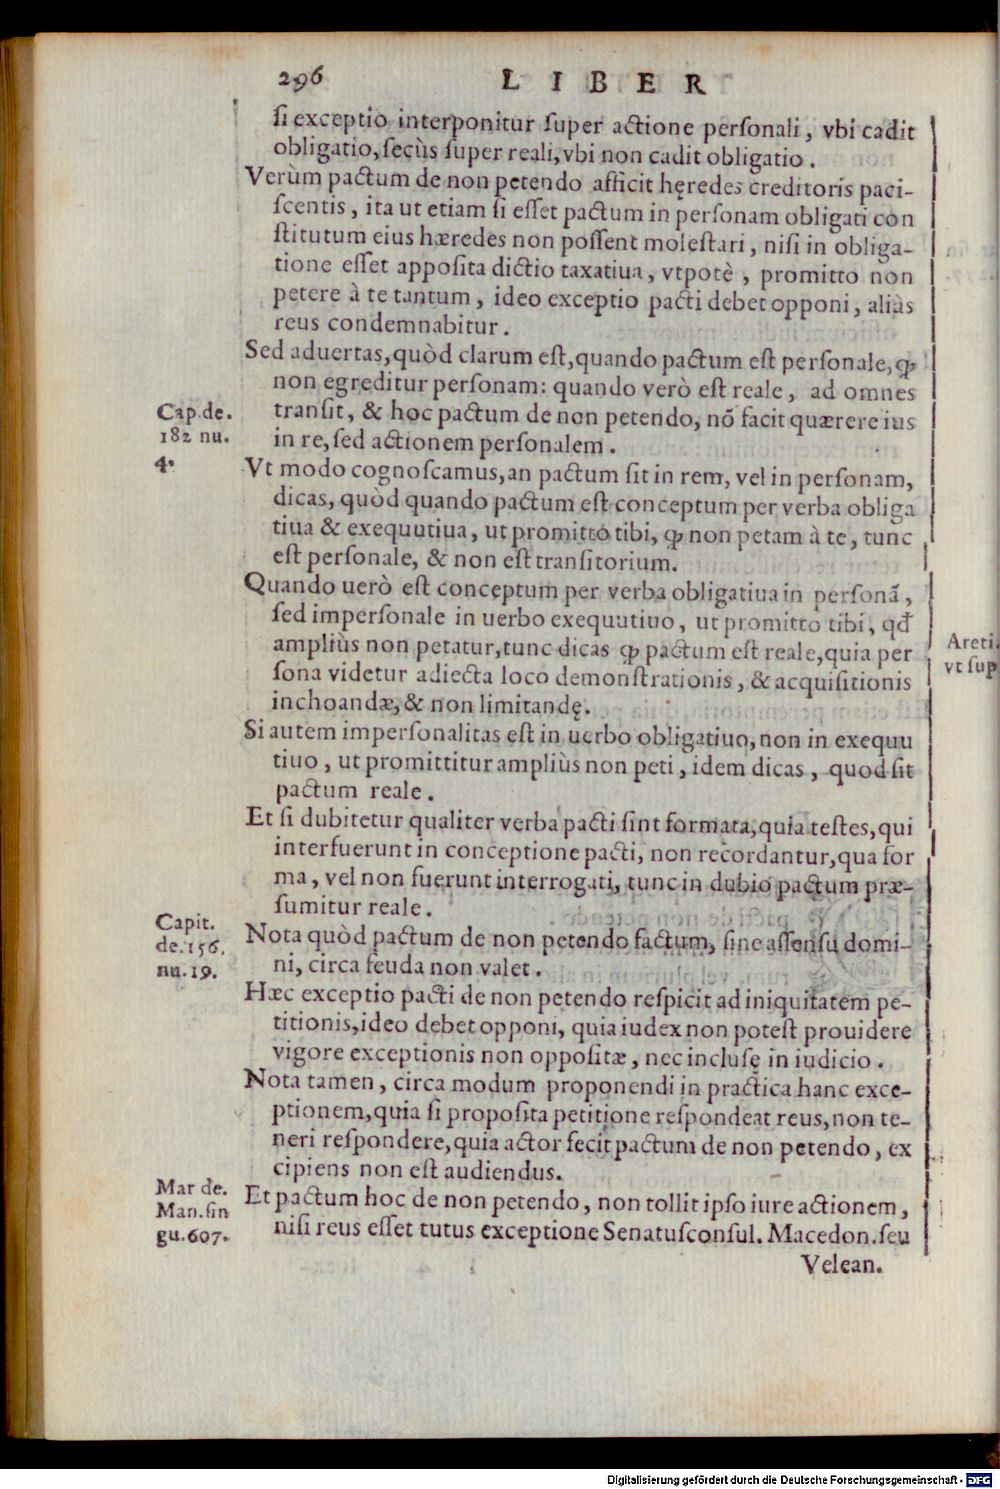 296 LIBER
ſi exceptio interponitur ſuper actione perſonali, vbi cadit
obligatio, ſecùs ſuper reali, vbi non cadit obligatio.
Verùm pactum de non petendo afficit hęredes creditoris paci-
ſcentis, ita ut etiam ſi eſſet pactum in perſonam obligati con
ſtitutum eius hæredes non poſſent moleſtari, niſi in obliga-
tione eſſet appoſita dictio taxatiua, vtpotè, promitto non
petere à te tantum, ideo exceptio pacti debet opponi, aliàs
reus condemnabitur.
Sed aduertas, quòd clarum eſt, quando pactum eſt perſonale, ꝙ
non egreditur perſonam: quando verò eſt reale, ad omnes
Cap. de.
182 nu.
4.
tranſit, & hoc pactum de non petendo, nō facit quærere ius
in re, ſed actionem perſonalem.
Vt modo cognoſcamus, an pactum ſit in rem, vel in perſonam,
dicas, quòd quando pactum eſt conceptum per verba obliga
tiua & exequutiua, ut promitto tibi, ꝙ non petam à te, tunc
eſt perſonale, & non eſt tranſitorium.
Quando uerò eſt conceptum per verba obligatiua in perſonā,
ſed imperſonale in uerbo exequutiuo, ut promitto tibi, qđ
Areti.
vt ſup
ampliùs non petatur, tunc dicas ꝙ pactum eſt reale, quia per
ſona videtur adiecta loco demonſtrationis, & acquiſitionis
inchoandæ, & non limitandę.
Si autem imperſonalitas eſt in uerbo obligatiuo, non in exequu
tiuo, ut promittitur ampliùs non peti, idem dicas, quod ſit
pactum reale.
Et ſi dubitetur qualiter verba pacti ſint formata, quia teſtes, qui
interfuerunt in conceptione pacti, non recordantur, qua for
ma, vel non fuerunt interrogati, tunc in dubio pactum præ-
ſumitur reale.
Capit.
de. 156.
nu. 19.
Nota quòd pactum de non petendo factum, ſine aſſenſu domi-
ni, circa feuda non valet.
Hæc exceptio pacti de non petendo reſpicit ad iniquitatem pe-
titionis, ideo debet opponi, quia iudex non poteſt prouidere
vigore exceptionis non oppoſitæ, nec incluſę in iudicio.
Nota tamen, circa modum proponendi in practica hanc exce-
ptionem, quia ſi propoſita petitione reſpondeat reus, non te-
neri reſpondere, quia actor fecit pactum de non petendo, ex
cipiens non eſt audiendus.
Mar de.
Man. ſin
gu. 607.
Et pactum hoc de non petendo, non tollit ipſo iure actionem,
niſi reus eſſet tutus exceptione Senatuſconſul. Macedon. ſeu
Velean.
Digitalisierung gefördert durch die Deutsche Forschungsgemeinschaft - DFG